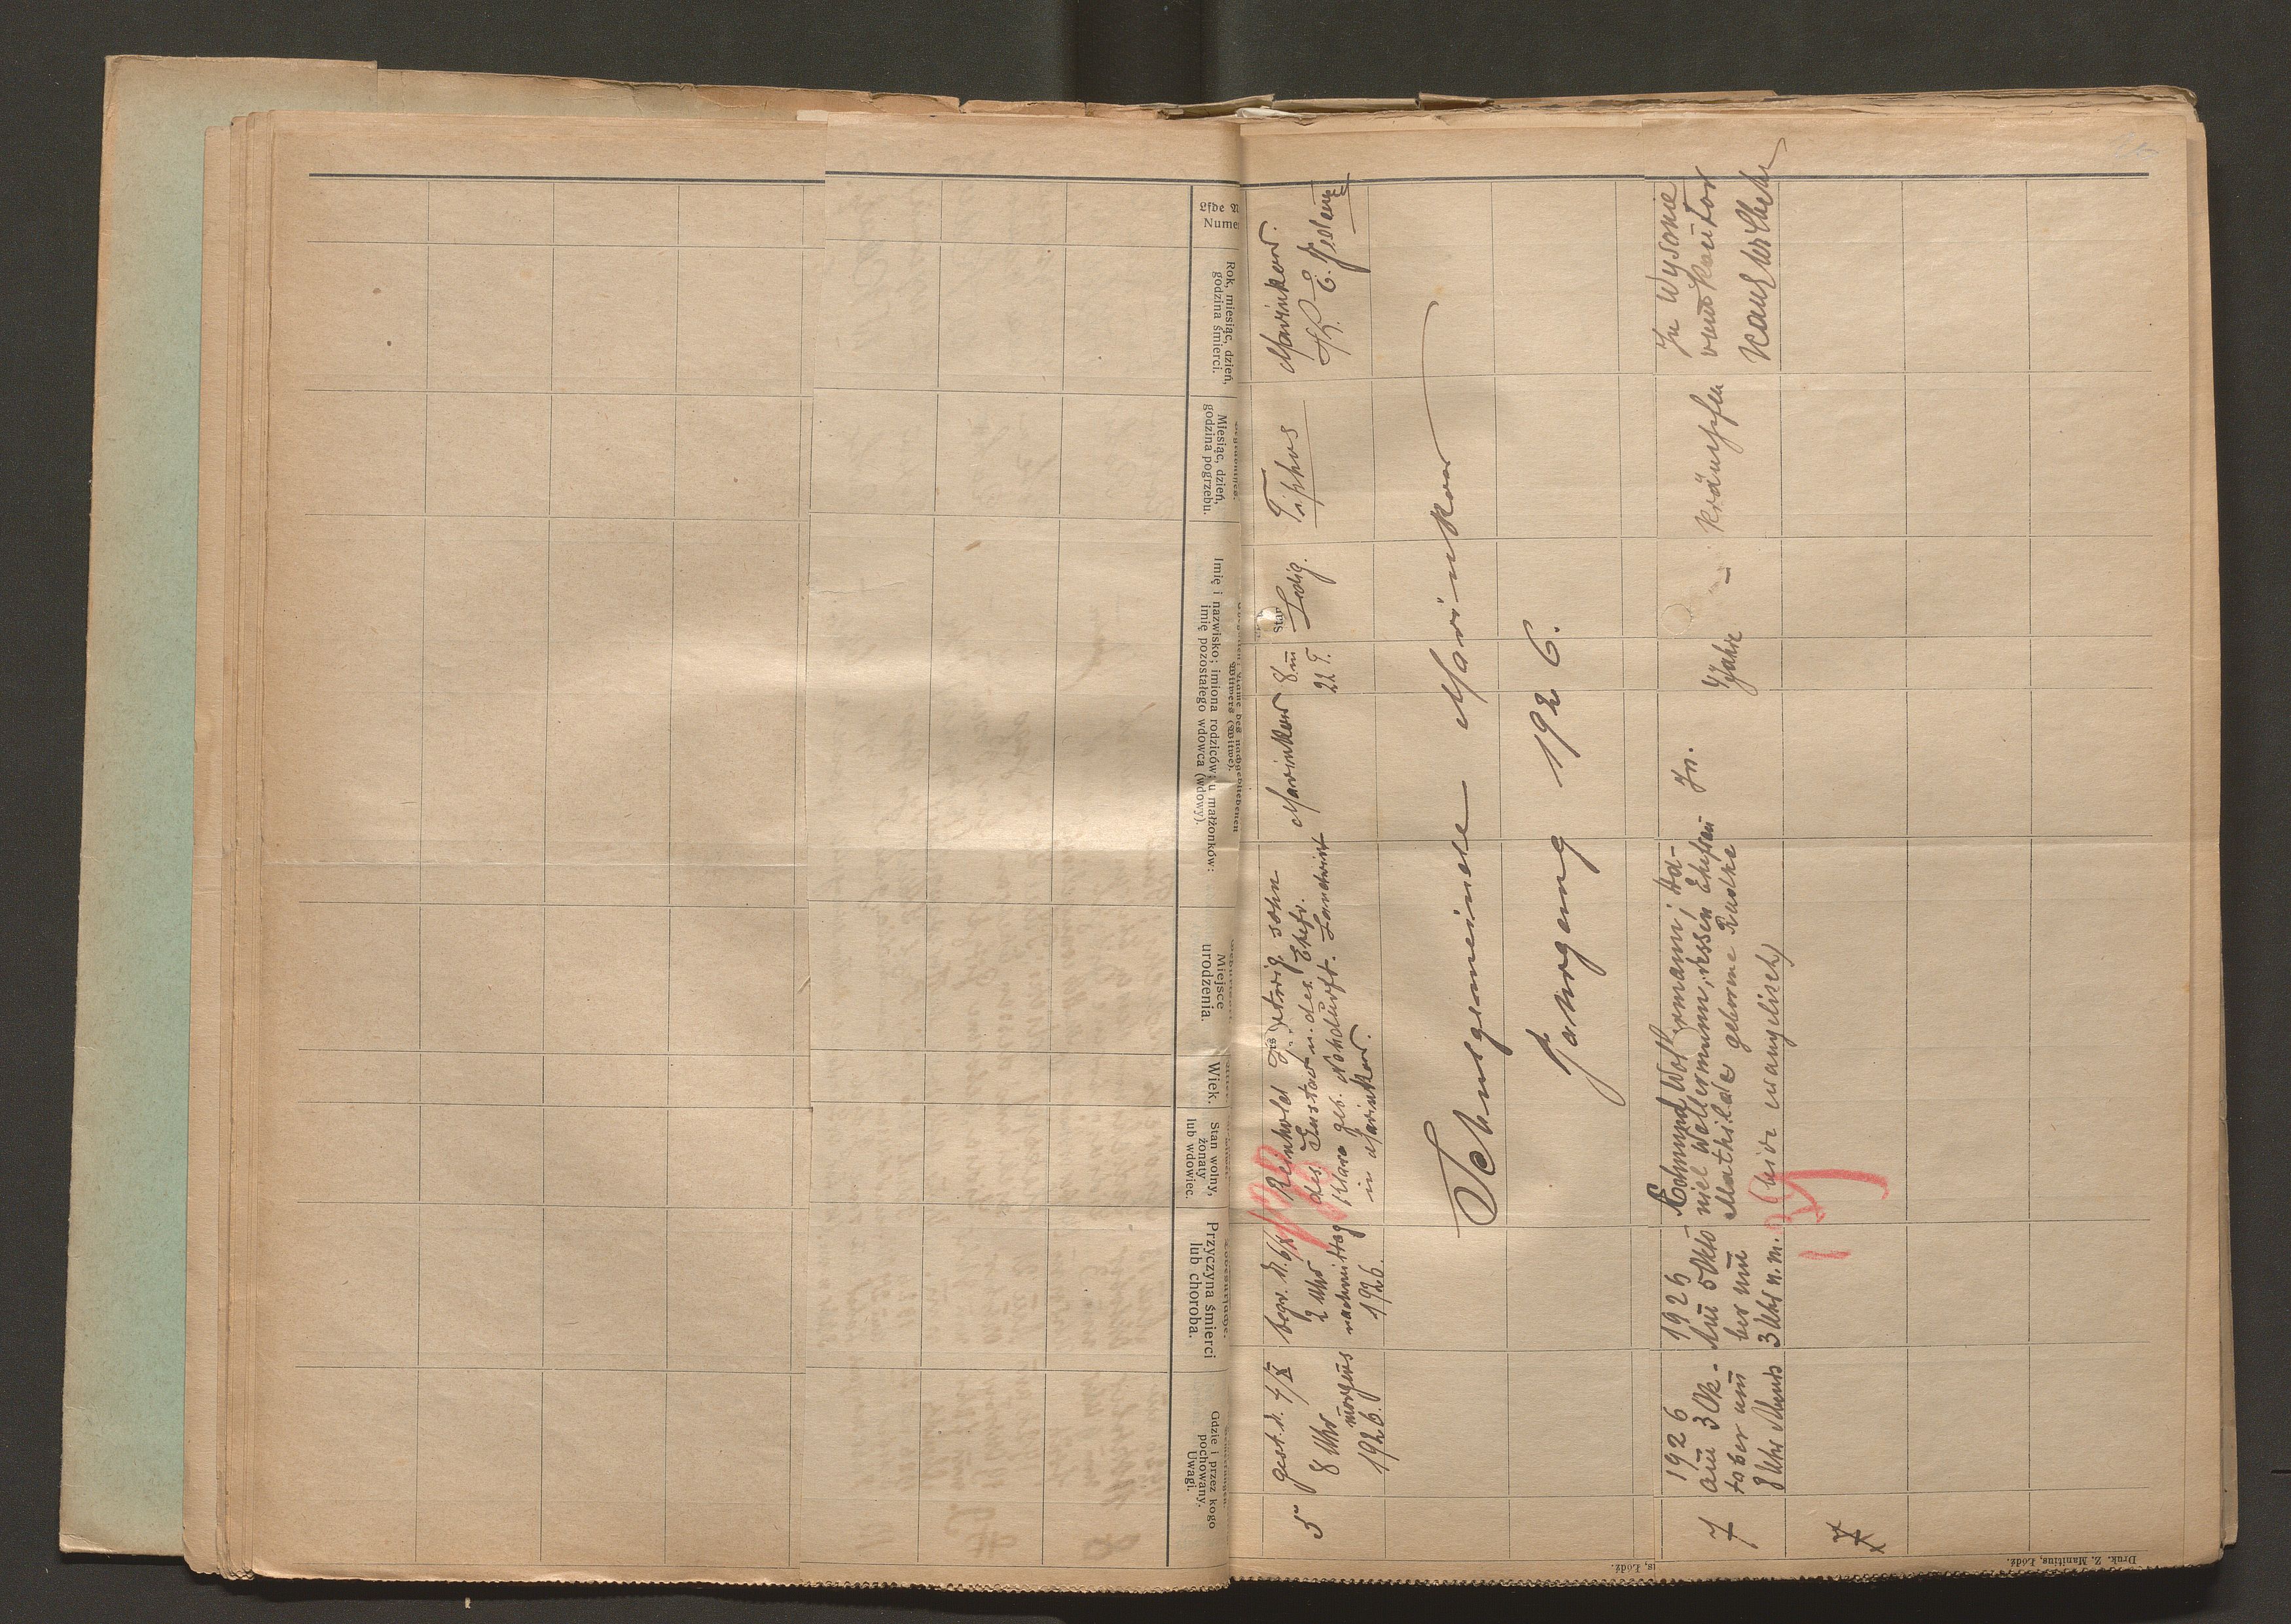 Lfde N
Nume
Rok, miesiąc, dzień,
godzina śmierci.
Miesiąc, dzień,
godzina pogrzebu.
Witwers (Witwe).
Imię i nazwisko; imiona rodziców; u małżonków:
imię pozostałego wdowca (wdowy).
Miejsce
urodzenia.
Wiek.
Stan wolny,
żonaty
lub wdowiec.
Przyczyna śmierci
lub choroba.
Gdzie i przez kogo
pochowany.
Uwagi.
5
gest. d. 4/X
8 Uhr
morgens
1926.
begr. d. 6/X
2 Uhr
nachmittag
1926.
Reinhold sohn
des Gustav u. des. Ehefr.
Klara geb. Landwirt
in Marinkow.
Marinkow
8 m
21 T.
Stan
Ledig.
Tiphos
Marinkow.
E.
Schulgemeinde Marinkow
Jahrgang 1926.
7
1926
am 3 Ok-
tober um
8 Uhr Abends
1926
Am 5 Okto
ber um
3 Uhr n. m.
Edmund Wollermann; Da-
niel Wollermann, dessen Ehefrau
Mathilde geborne Radke
(beide evangelisch)
In.
4 Jahr
-
krämpfen
In Wysokie
vom Kantor
7
Druk. Z. Manitius, Łódź.